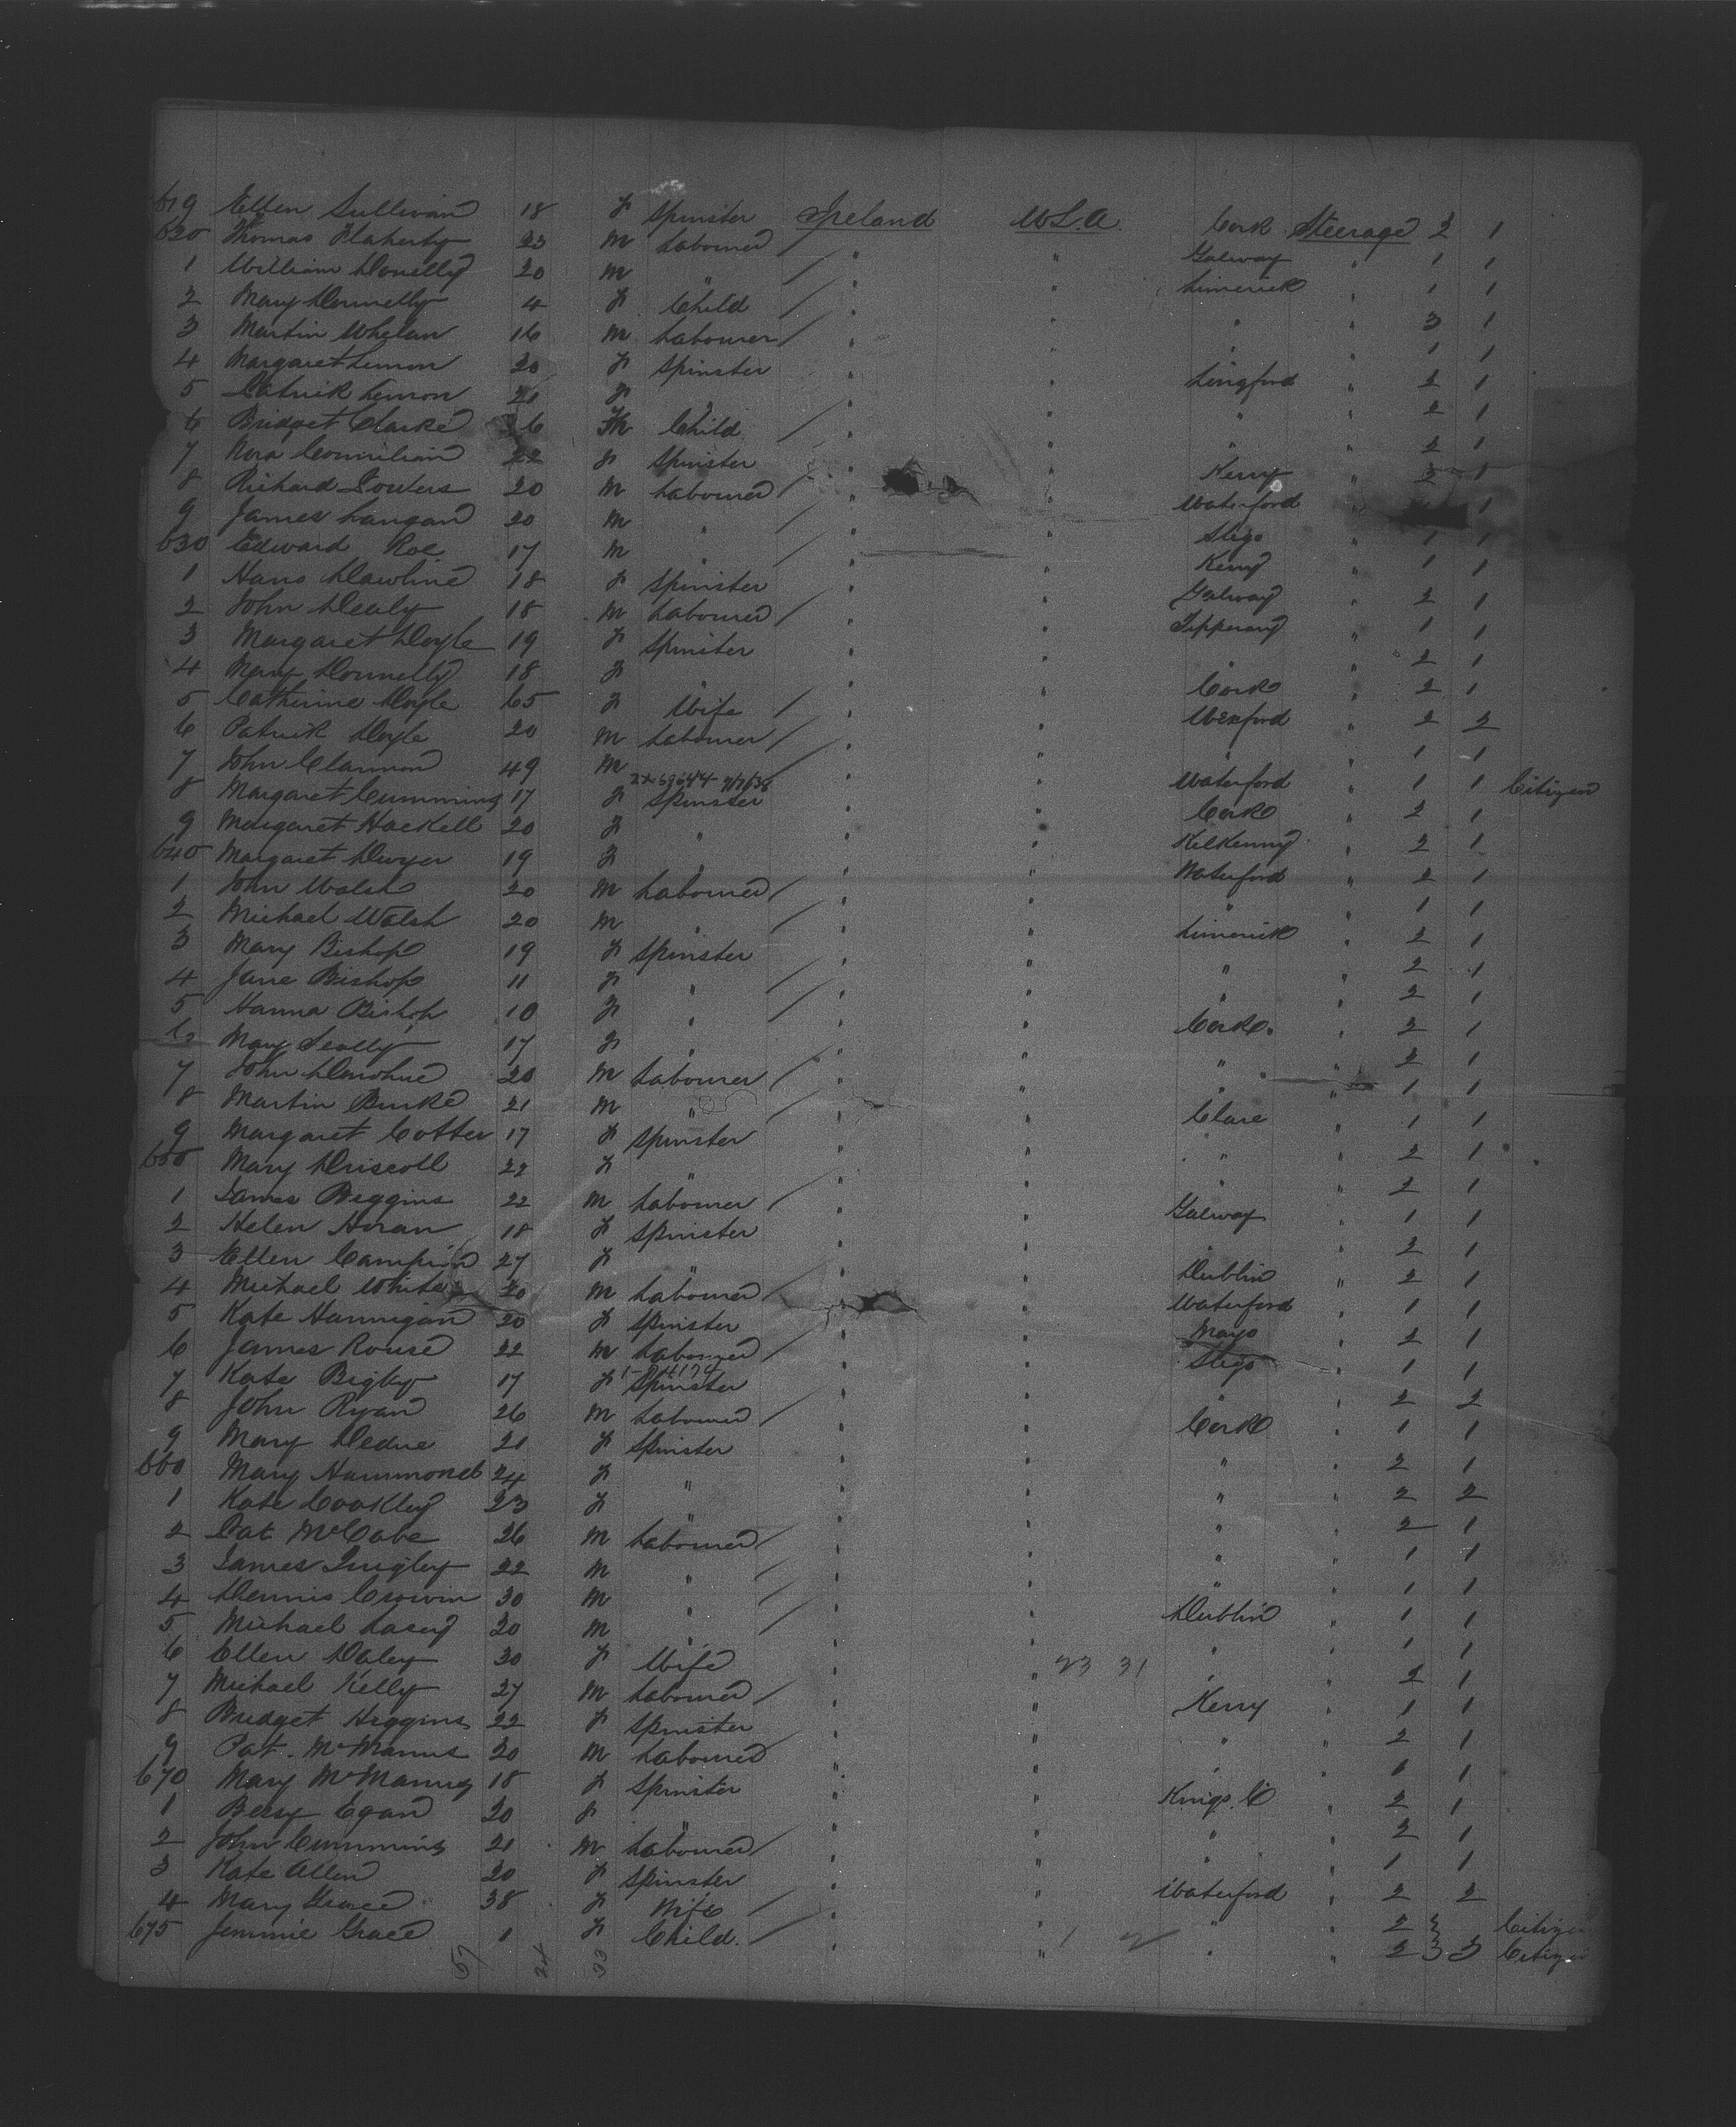 619 Ellen Sullivan 18 F Spinster Ireland U.S.A. Cork Steerage 2 1
620 Thomas Flaherty 23 M Labourer / " " Galway " 1 1
1 William Donelly 20 M " / " " Limerick " 1 1
2 Mary Donnelly 4 F Child / " " " " 3 1
3 Martin Whelan 16 M Labourer / " " " " 1 1
4 Margaret Lennon 20 F Spinster " " Longford " 2 1
5 Patrick Lennon 21 F " " " " " 2 1
6 Bridget Clarke 6 Child / " " " " 2 1
7 Nora 22 F Spinster " " Kerry " 2 1
8 Richard Powers 20 M Labourer / " " Waterford " 1
9 James Langan 20 M " / " " Sligo " 1 1
630 Edward Roe 17 M " " " Kerry " 1 1
1 18 F Spinster " " Galway " 2 1
2 John Healy 18 M Labourer / " " Tipperary " 1 1
3 Margaret Doyle 19 F Spinster " " " " 2 1
4 Mary Donnelly 18 F " " " Cork " 2 1
5 Catherine Doyle 65 F Wife / " " Wexford " 2 2
6 Patrick Doyle 20 M Labourer / " " " " 1 1
7 John 49 M / " " Waterford " 1 1 Citizen
8 Margaret Cummins 17 F Spinster " " Cork " 2 1
9 Margaret Hackell 20 F " " " Kilkenny " 2 1
640 Margaret Dwyer 19 F " " " Waterford " 2 1
1 John Walsh 20 M Labourer / " " " " 1 1
2 Michael Walsh 20 M " / " " Limerick " 2 1
3 Mary Bishop 19 F Spinster " " " " 2 1
4 Jane Bishop 11 F " / " " " " 2 1
5 Hanna Bishop 10 F " / " " Cork. " 2 1
6 Mary Scally 17 F " " " " " 2 1
7 John Donohue 20 M Labourer / " " " " 1 1
8 Martin Burke 21 M " / " " Clare " 1 1
9 Margaret Cotter 17 F Spinster " " " " 2 1
650 Mary Driscoll 22 F " " " " " 2 1
1 James Beggins 22 M Labourer / " " Galway " 1 1
2 Helen Horan 18 F Spinster " " " " 2 1
3 Ellen Campion 27 F " " " Dublin " 2 1
4 Michael White 20 M Labourer / " " Waterford " 1 1
5 Kate Hannigan 20 F Spinster " " Mayo " 2 1
6 James Rouse 22 M Labourer / " " Sligo " 1 1
7 Kate Bigley 17 F Spinster " " " " 2 2
8 John Ryan 26 M Labourer / " " Cork " 1 1
9 Mary 21 F Spinster " " " " 2 1
660 Mary Hammond 24 F " " " " " 2 2
1 Kate Coakley 23 F " " " " " 2 1
2 Pat McCabe 26 M Labourer / " " " " 1 1
3 James Quigley 22 M " / " " " " 1 1
4 Dennis Crowin 30 M " / " " Dublin " 1 1
5 Michael Lacey 20 M " / " " " " 1 1
6 Ellen Daley 30 F Wife " " 23 31 " " 2 1
7 Michael Kelly 27 M Labourer / " " Kerry " 1 1
8 Bridget Higgins 22 F Spinster " " " " 2 1
9 Pat. McManus 20 M Labourer " " " " 1 1
670 Mary McManus 18 F Spinster " " Kings Co " 2 1
1 Bessy Egan 20 F " " " " " 2 1
2 John Cummins 21 M Labourer / " " " " 1 1
3 Kate Allen 20 F Spinster " " Waterford " 2 2
4 Mary Grace 38 F Wife / " " " " 2 3 Citizen
675 Jemmie Grace 1 F Child. / " " " " 2 3 3 Citizen